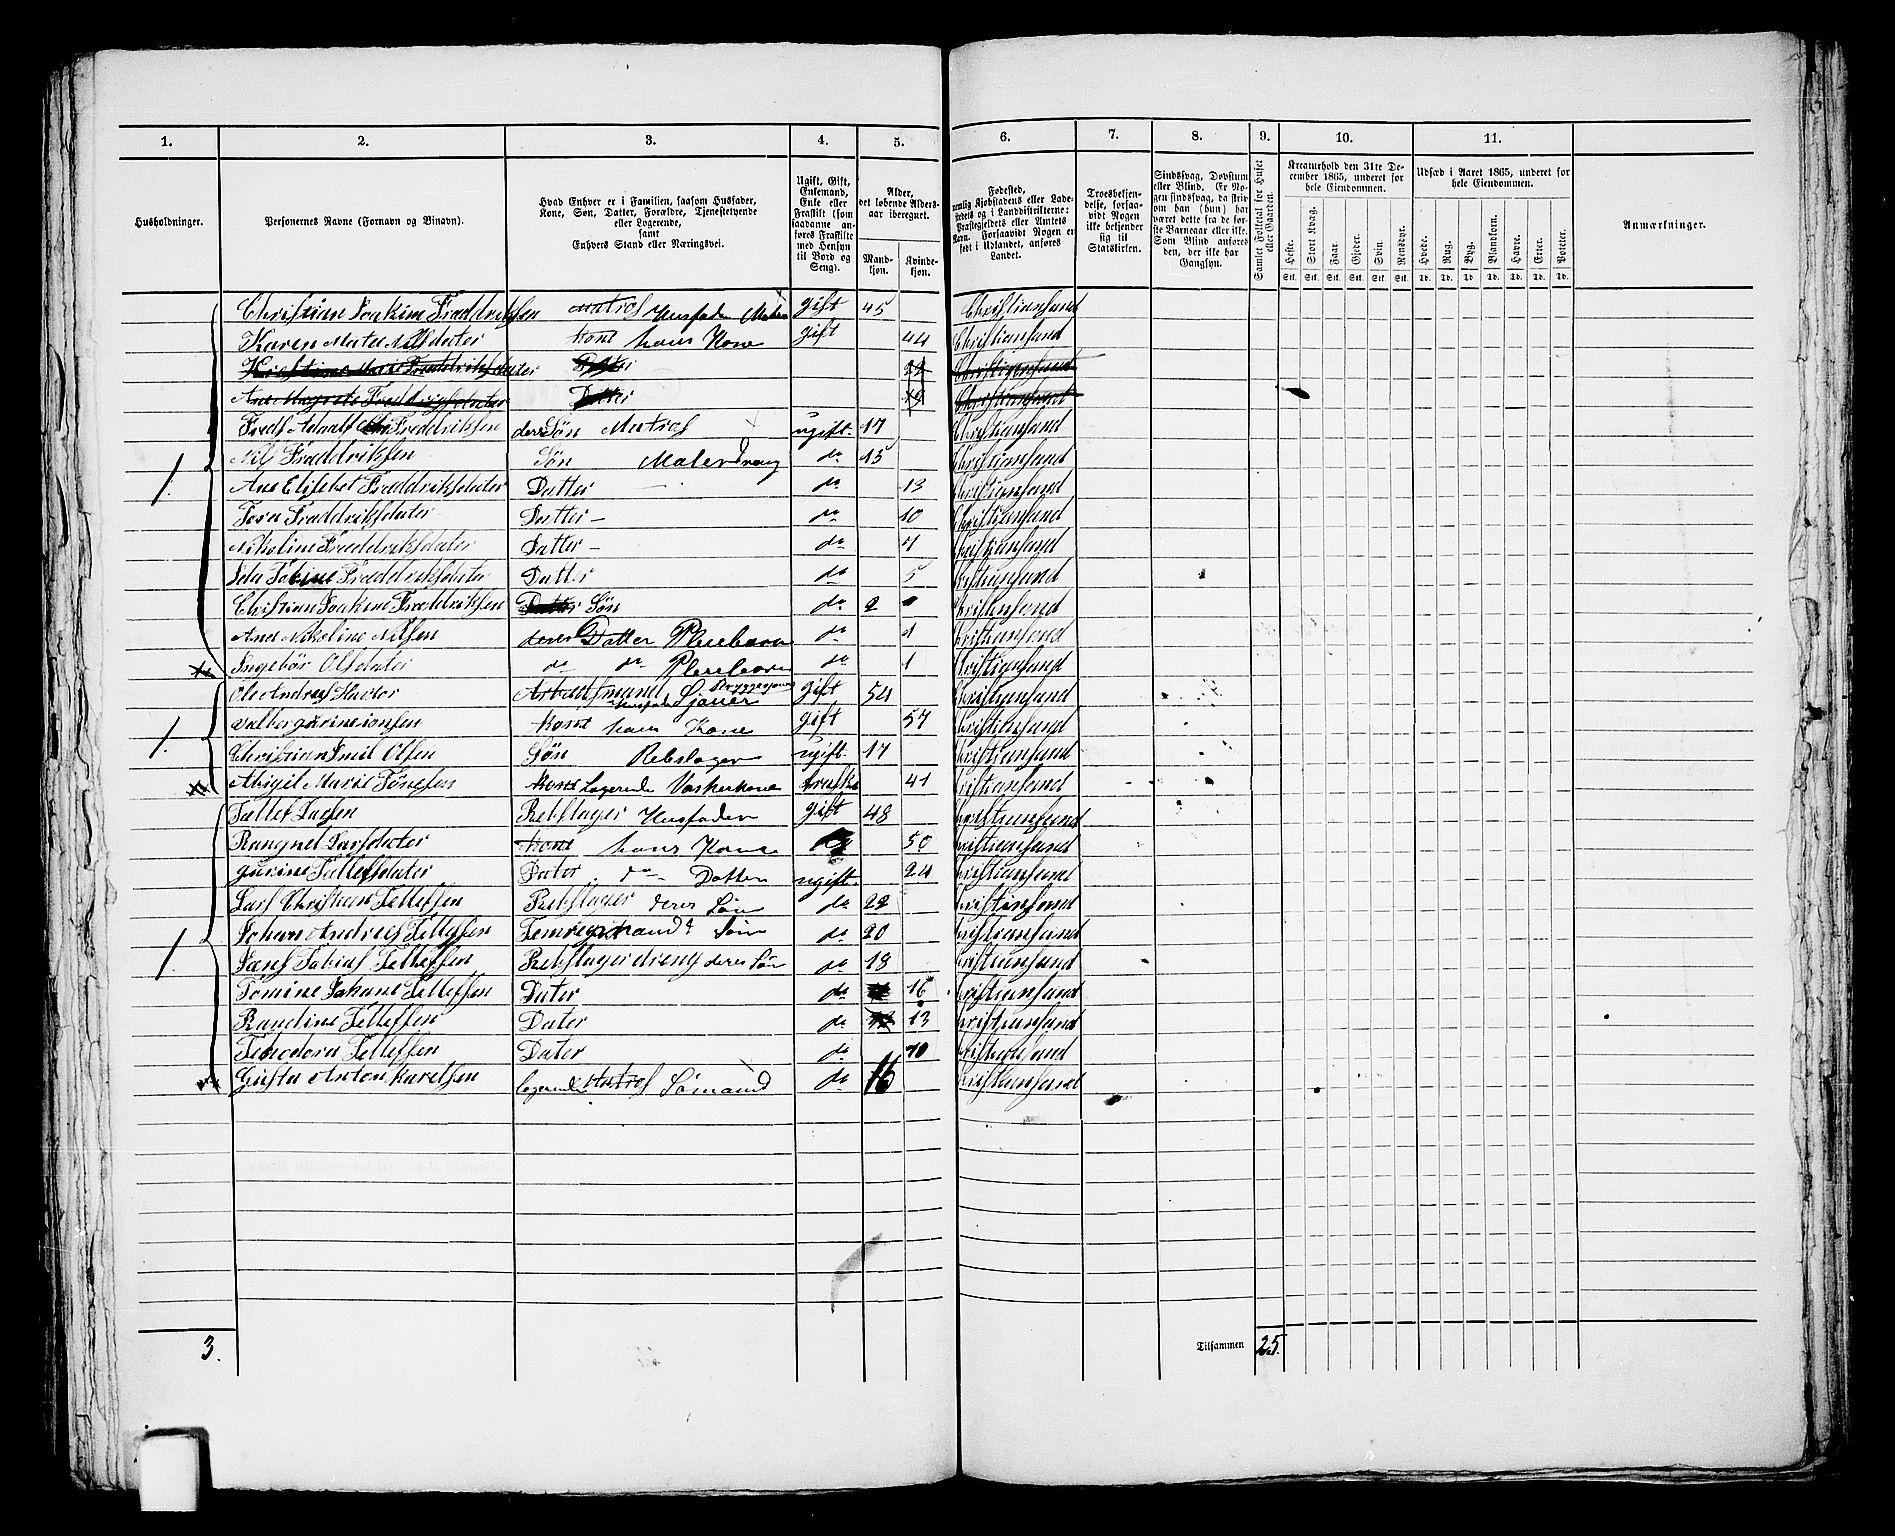 1. 2. 3. 4. 5. 6. 7. 8. 9. 10. 11.
Husholdninger.
Personernes Navne (Fornavn og Binavn).
Hvad Enhver er i Familien, saasom Husfader,
Kone, Søn, Datter, Forældre, Tjenestetyende
eller Logerende,
samt
Enhvers Stand eller Næringsvei.
Ugift, Gift,
Enkemand,
Enke eller
Fraskilt (som
saadanne an-
føres Fraskilte
med Hensyn
til Bord og
Seng).
Alder,
det løbende Alders-
aar iberegnet.
Mand-
kjøn.
Kvinde-
kjøn.
Fødested,
nemlig Kjøbstadens eller Lade-
stedets og i Landdistrikterne:
Præstegjeldets eller Amtets
Navn. Forsaavidt Nogen er
født i Udlandet, anføres
Landet.
Troesbekjen-
delse, forsaa-
vidt Nogen
ikke bekjender
sig til
Statskirken.
Sindssvag, Døvstum
eller Blind. Er No-
gen sindssvag, da skriv
om han (hun) har
været dette fra de før-
ste Barneaar eller ikke.
Som Blind anføres
den, der ikke har
Gangsyn.
Samlet Folketal for Huset
eller Gaarden.
Kreaturhold den 31te De-
cember 1865, underet for
hele Eiendommen.
Heste. Stort Kvæg. Faar. Gjeder. Svin. Rensdyr.
Stk. Stk. Stk. Stk. Stk. Stk.
Udsæd i Aaret 1865, underet for
hele Eiendommen.
Hvede. Rug. Byg. Blandkorn. Havre. Erter. Poteter.
Td. Td. Td. Td. Td. Td. Td.
Anmærkninger.
Christian Joakim Fræddriksen Matros Husfader gift 45 Christiansand
Karen Nilsdater Kone hans Kone gift 44 Christiansand
Kristine Marie Fræddriksdater Datter 22 Christiansand
Ane Magrete Fræddriksdater Datter 19 Christiansand
Fredr Adoalf Fræddriksen deres Søn Matros ugift. 17 Christiansand
1. Nils Fræddriksen Søn Malerdreng do 15 Christiansand
Ane Elisebet Fræddriksdater Datter do 13 Christiansand
Tora Fræddriksdater Datter do 10 Christiansand
Nikoline Fræddriksdater Datter do 7 Christiansand
Ida Tobine Fræddriksdater Datter do 5 Christiansand
Christian Joakim Fræddriksen Datter Søn do 2 Christiansand
Ane Nikoline Nilsen deres Datter Pleiebarn do 1 Christiansand
Ingebør Olsdater do do Pleiebarn do 1 Christiansand
Ole Andreas Arbeidsmand Husfader Sjouer Bryggesjouer gift 54 Christiansand
Kone hans Kone gift 57 Christiansand
1. Christian Emil Olsen Søn Rebslager ugift. 17 Christiansand
Abigil Marie Tønesen Kone Logerende Vaskerkone fraskilt 41 Christiansand
Tellef Larsen Rebslager Husfader gift 48 Christiansand
Rangnel Larsdater Kone hans Kone do 50 Christiansand
Gurine Tellefsdater Dater do Datter ugift. 24 Christiansand
Lars Christian Tellefsen Rebslager deres Søn do 22 Christiansand
1. Johan Andreas Tellefsen Tømmermand do Søn do 20 Christiansand
Jens Tobias Tellefsen Rebslagerdreng deres Søn do 18 Christiansand
Tomine Johane Tellefsen Dater do 16 Christiansand
Randine Tellefsen Dater do 13 Christiansand
Teodora Tellefsen Dater do 10 Christiansand
Gusta Anton Karelsen logerende Matros Sømand do 16 Christiansand
3. Tilsammen 25.